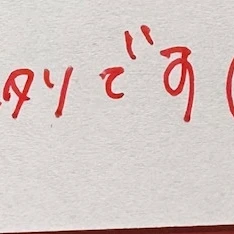 タリです(